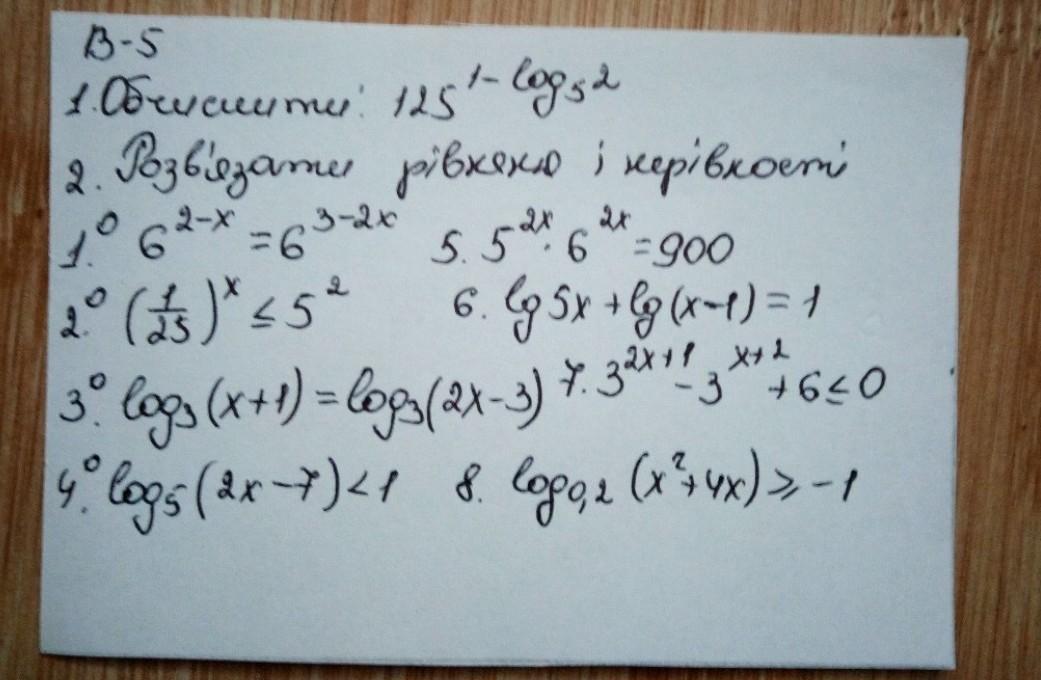 В-5
1. Обчислити: 125^{1-log_5 2}
2. Розв'язати рівняння і нерівності
1.° 6^{2-x} = 6^{3-2x} 5. 5^{2x} · 6^{2x} = 900
2.° (1/25)^x ≤ 5^2 6. lg 5x + lg (x-1) = 1
3.° log_3 (x+1) = log_3 (2x-3) 7. 3^{2x+1} - 3^{x+2} + 6 ≤ 0
4.° log_5 (2x-7) < 1 8. log_{0,2} (x^2+4x) ≥ -1